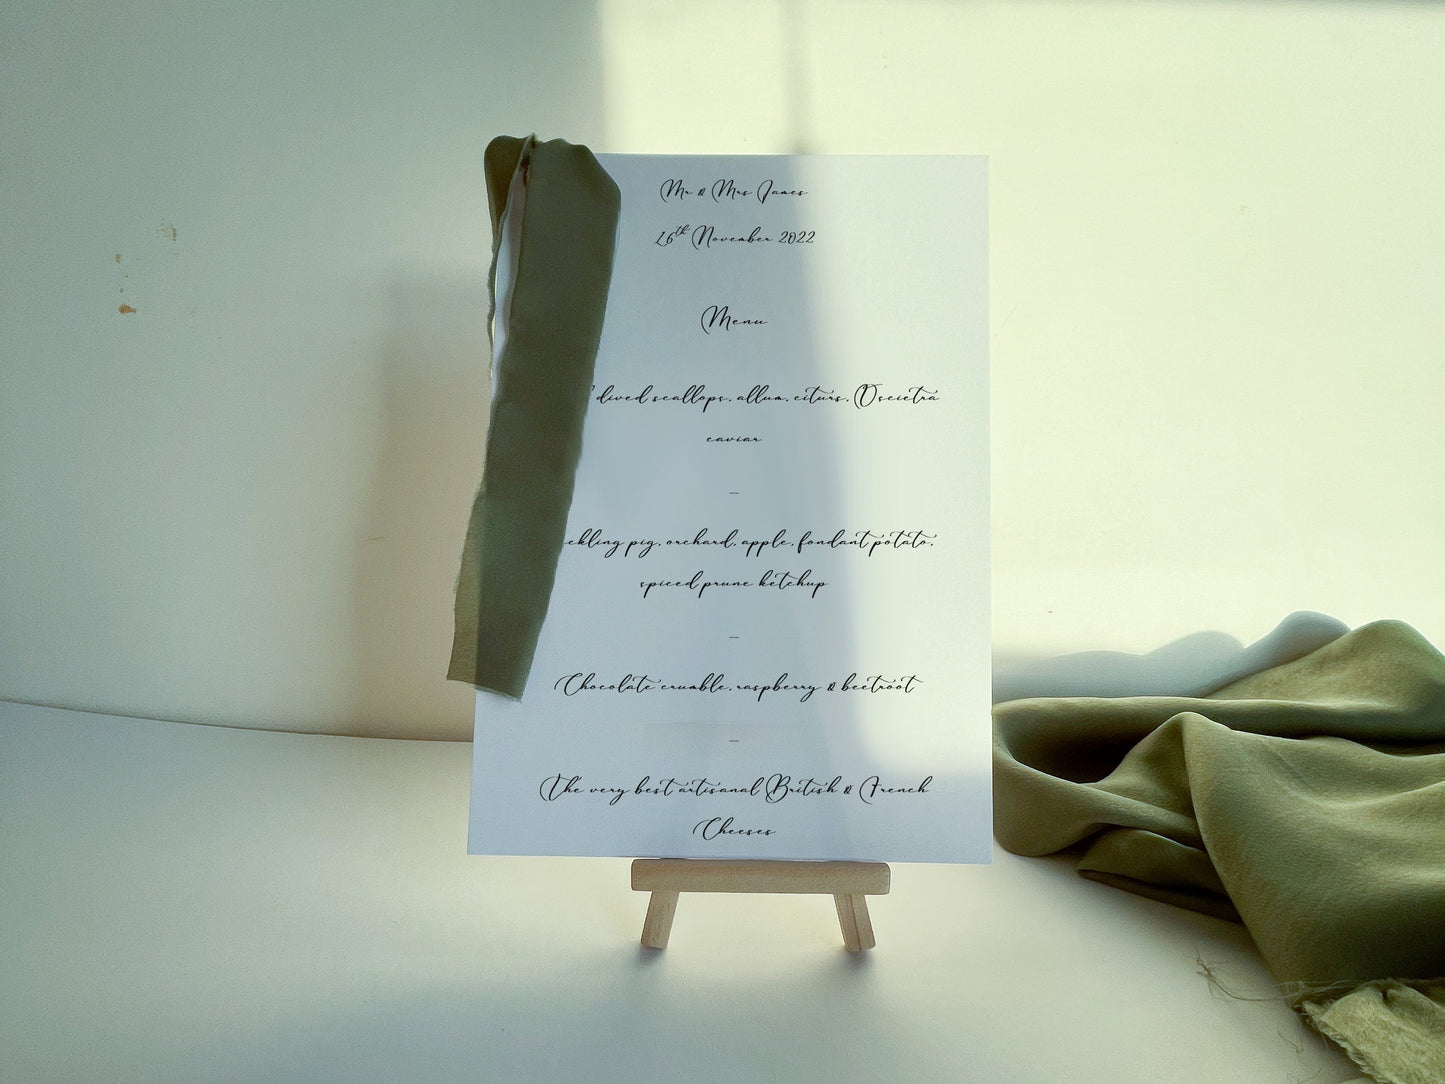 Mr & Mrs James
26th November 2022
Menu
dived scallops, allum, citurs, Oscietra
caviar
–
pig, orchard, apple, fondant potato,
spiced prune ketchup
–
Chocolate crumble, raspberry & beetroot
–
The very best artisanal British & French
Cheeses